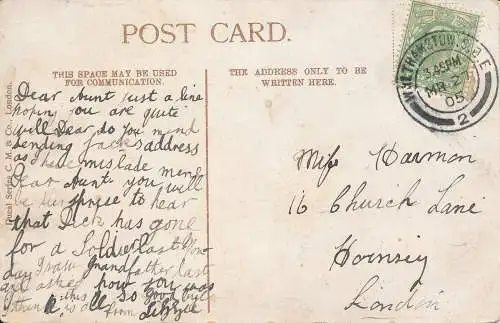 POST CARD.
THIS SPACE MAY BE USED
FOR COMMUNICATION.
THE ADDRESS ONLY TO BE
WRITTEN HERE.
Series C. M. & Co. London.
WALTHAMSTOW. S.O. E
3.45PM
MR 2
05
2
Dear Aunt just a line
hoping you are quite
will Dear do you mind
sending Jacks address
as I have mislade mine
Dear Aunt you will
be to hear
that Dick has gone
for a Soldier last Mon
day I saw Grandfather last
asked how you was
this is all so good bye
from
Miss Harmon
16 Church Lane
Hornsey
London